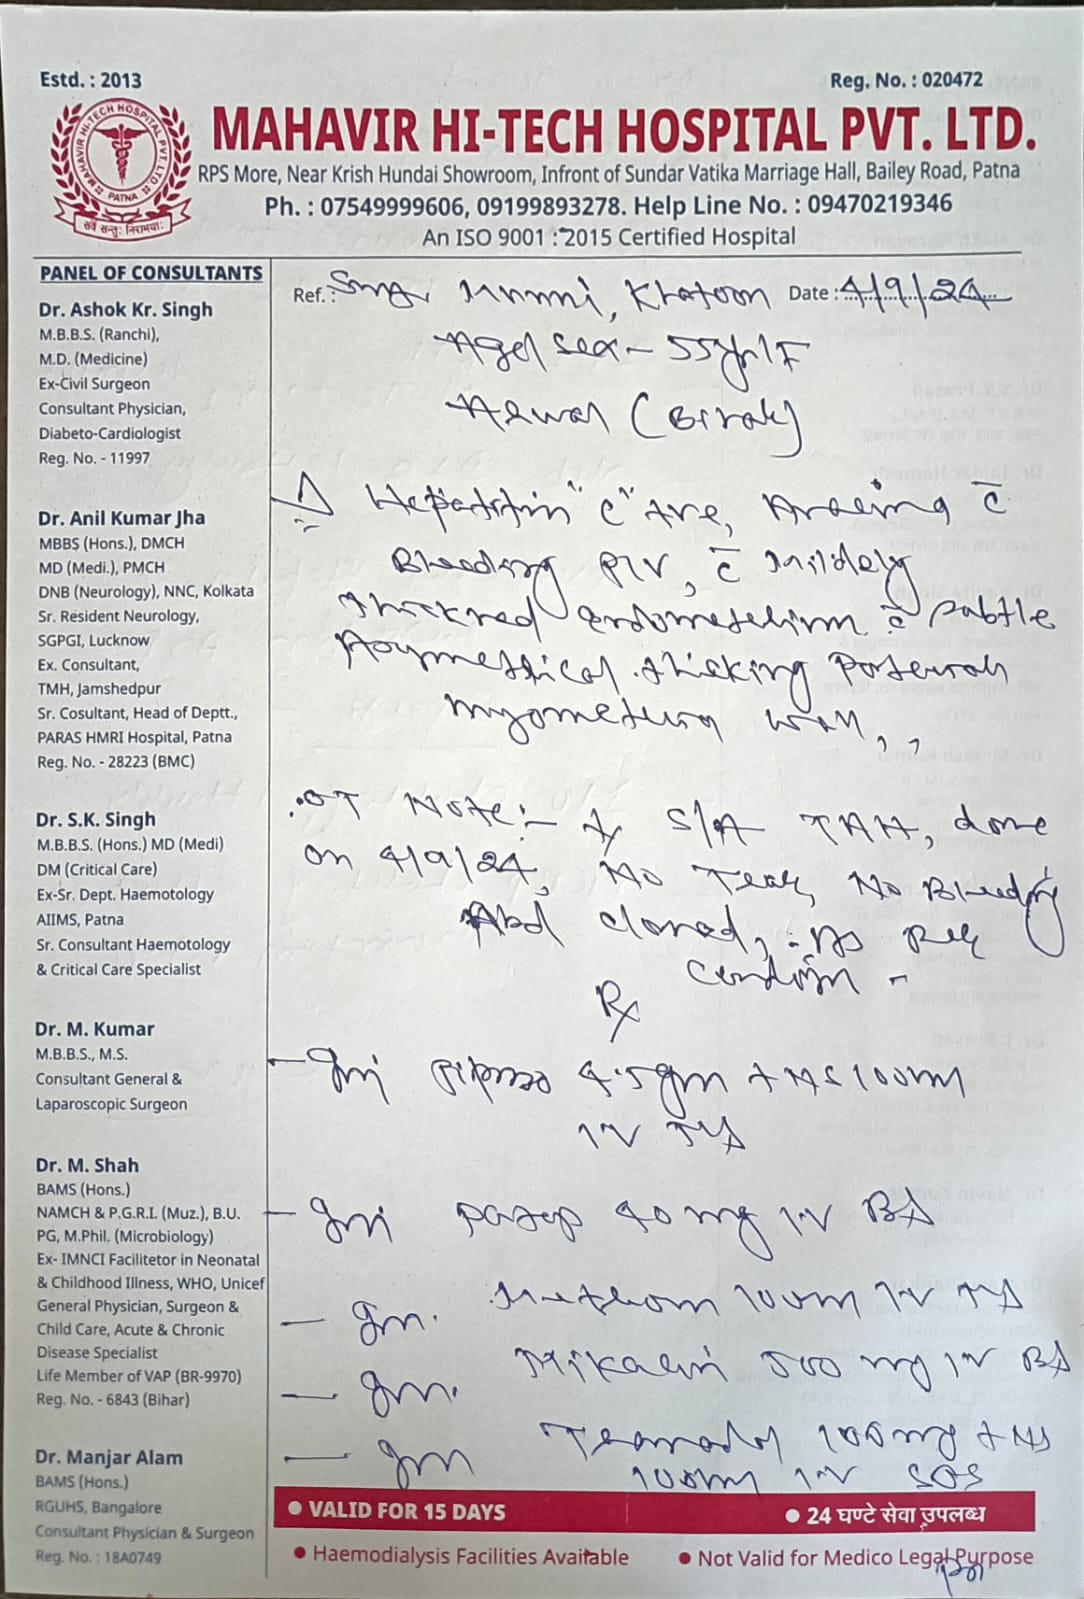 Estd. : 2013
Reg. No. : 020472
MAHAVIR HI-TECH HOSPITAL PVT. LTD.
RPS More, Near Krish Hundai Showroom, Infront of Sundar Vatika Marriage Hall, Bailey Road, Patna
Ph. : 07549999606, 09199893278. Help Line No. : 09470219346
An ISO 9001 : 2015 Certified Hospital
MAHAVIR HI-TECH HOSPITAL PVT. LTD.
PATNA
सर्वे सन्तु: निरामया:
PANEL OF CONSULTANTS
Dr. Ashok Kr. Singh
M.B.B.S. (Ranchi),
M.D. (Medicine)
Ex-Civil Surgeon
Consultant Physician,
Diabeto-Cardiologist
Reg. No. - 11997
Dr. Anil Kumar Jha
MBBS (Hons.), DMCH
MD (Medi.), PMCH
DNB (Neurology), NNC, Kolkata
Sr. Resident Neurology,
SGPGI, Lucknow
Ex. Consultant,
TMH, Jamshedpur
Sr. Cosultant, Head of Deptt.,
PARAS HMRI Hospital, Patna
Reg. No. - 28223 (BMC)
Dr. S.K. Singh
M.B.B.S. (Hons.) MD (Medi)
DM (Critical Care)
Ex-Sr. Dept. Haemotology
AIIMS, Patna
Sr. Consultant Haemotology
& Critical Care Specialist
Dr. M. Kumar
M.B.B.S., M.S.
Consultant General &
Laparoscopic Surgeon
Dr. M. Shah
BAMS (Hons.)
NAMCH & P.G.R.I. (Muz.), B.U.
PG, M.Phil. (Microbiology)
Ex- IMNCI Facilitetor in Neonatal
& Childhood Illness, WHO, Unicef
General Physician, Surgeon &
Child Care, Acute & Chronic
Disease Specialist
Life Member of VAP (BR-9970)
Reg. No. - 6843 (Bihar)
Dr. Manjar Alam
BAMS (Hons.)
RGUHS, Bangalore
Consultant Physician & Surgeon
Reg. No. : 18A0749
Ref. : Munni, Khatoon Date : 4/9/24
Age/sex - 55yr/F
Arwal
"C" +ve, c̄
Bleeding P/V, c̄ mildely
endometrium c̄ subtle
wall,
OT Note:- S/A TAH, done
on 4/9/24, No Bleeding
Abd closed,
Rx
- Inj 4.5gm + NS 100ml
IV
- Inj 40 mg IV BD
- Inj. 100ml IV
- Inj. 500 mg IV BD
- Inj 100mg + NS
100ml IV SOS
● VALID FOR 15 DAYS
● 24 घण्टे सेवा उपलब्ध
● Haemodialysis Facilities Available
● Not Valid for Medico Legal Purpose